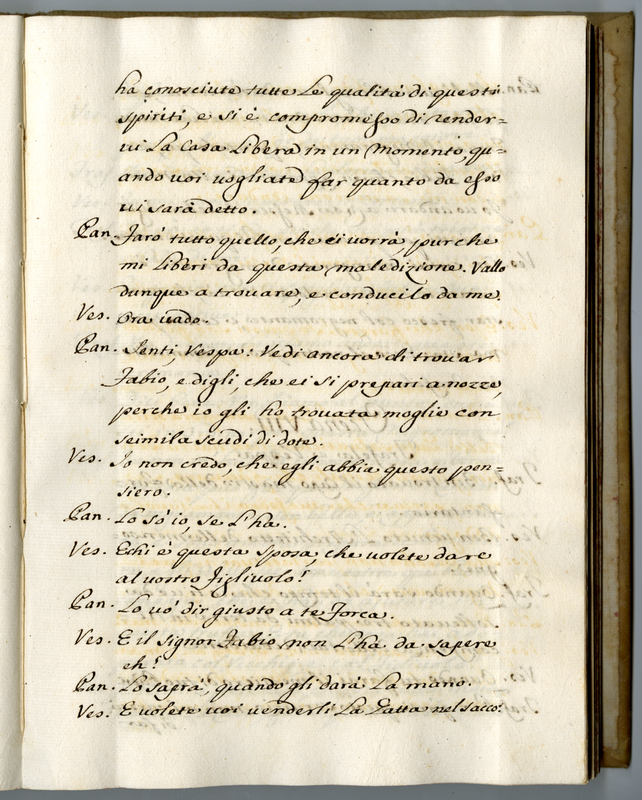 ha conosciute tutte le qualità di questi
spiriti, e si è compromesso di render=
vi la casa libera in un momento, qu=
ando voi vogliate far quanto da esso
vi sarà detto.
Pan. Farò tutto quello, che ei vorrà, purche
mi liberi da questa maledizione. Vallo
dunque a trovare, e conducilo da me.
Ves. Ora vado.
Pan. Senti, Vespa: Vedi ancora di trovar
Fabio, e digli, che ei si prepari a nozze,
perche io gli ho trovata moglie con
seimila scudi di dote.
Ves. Io non credo, che egli abbia questo pen=
siero.
Pan. Lo sò io, se l'ha.
Ves. E chi è questa sposa, che volete dare
al vostro figlivolo?
Pan. Lo vo' dir giusto a te forca.
Ves. E il signor Fabio non l'ha da sapere
eh?
Pan. Lo saprà, quando gli darà la mano.
Ves. E volete voi venderli la Gatta nel sacco?